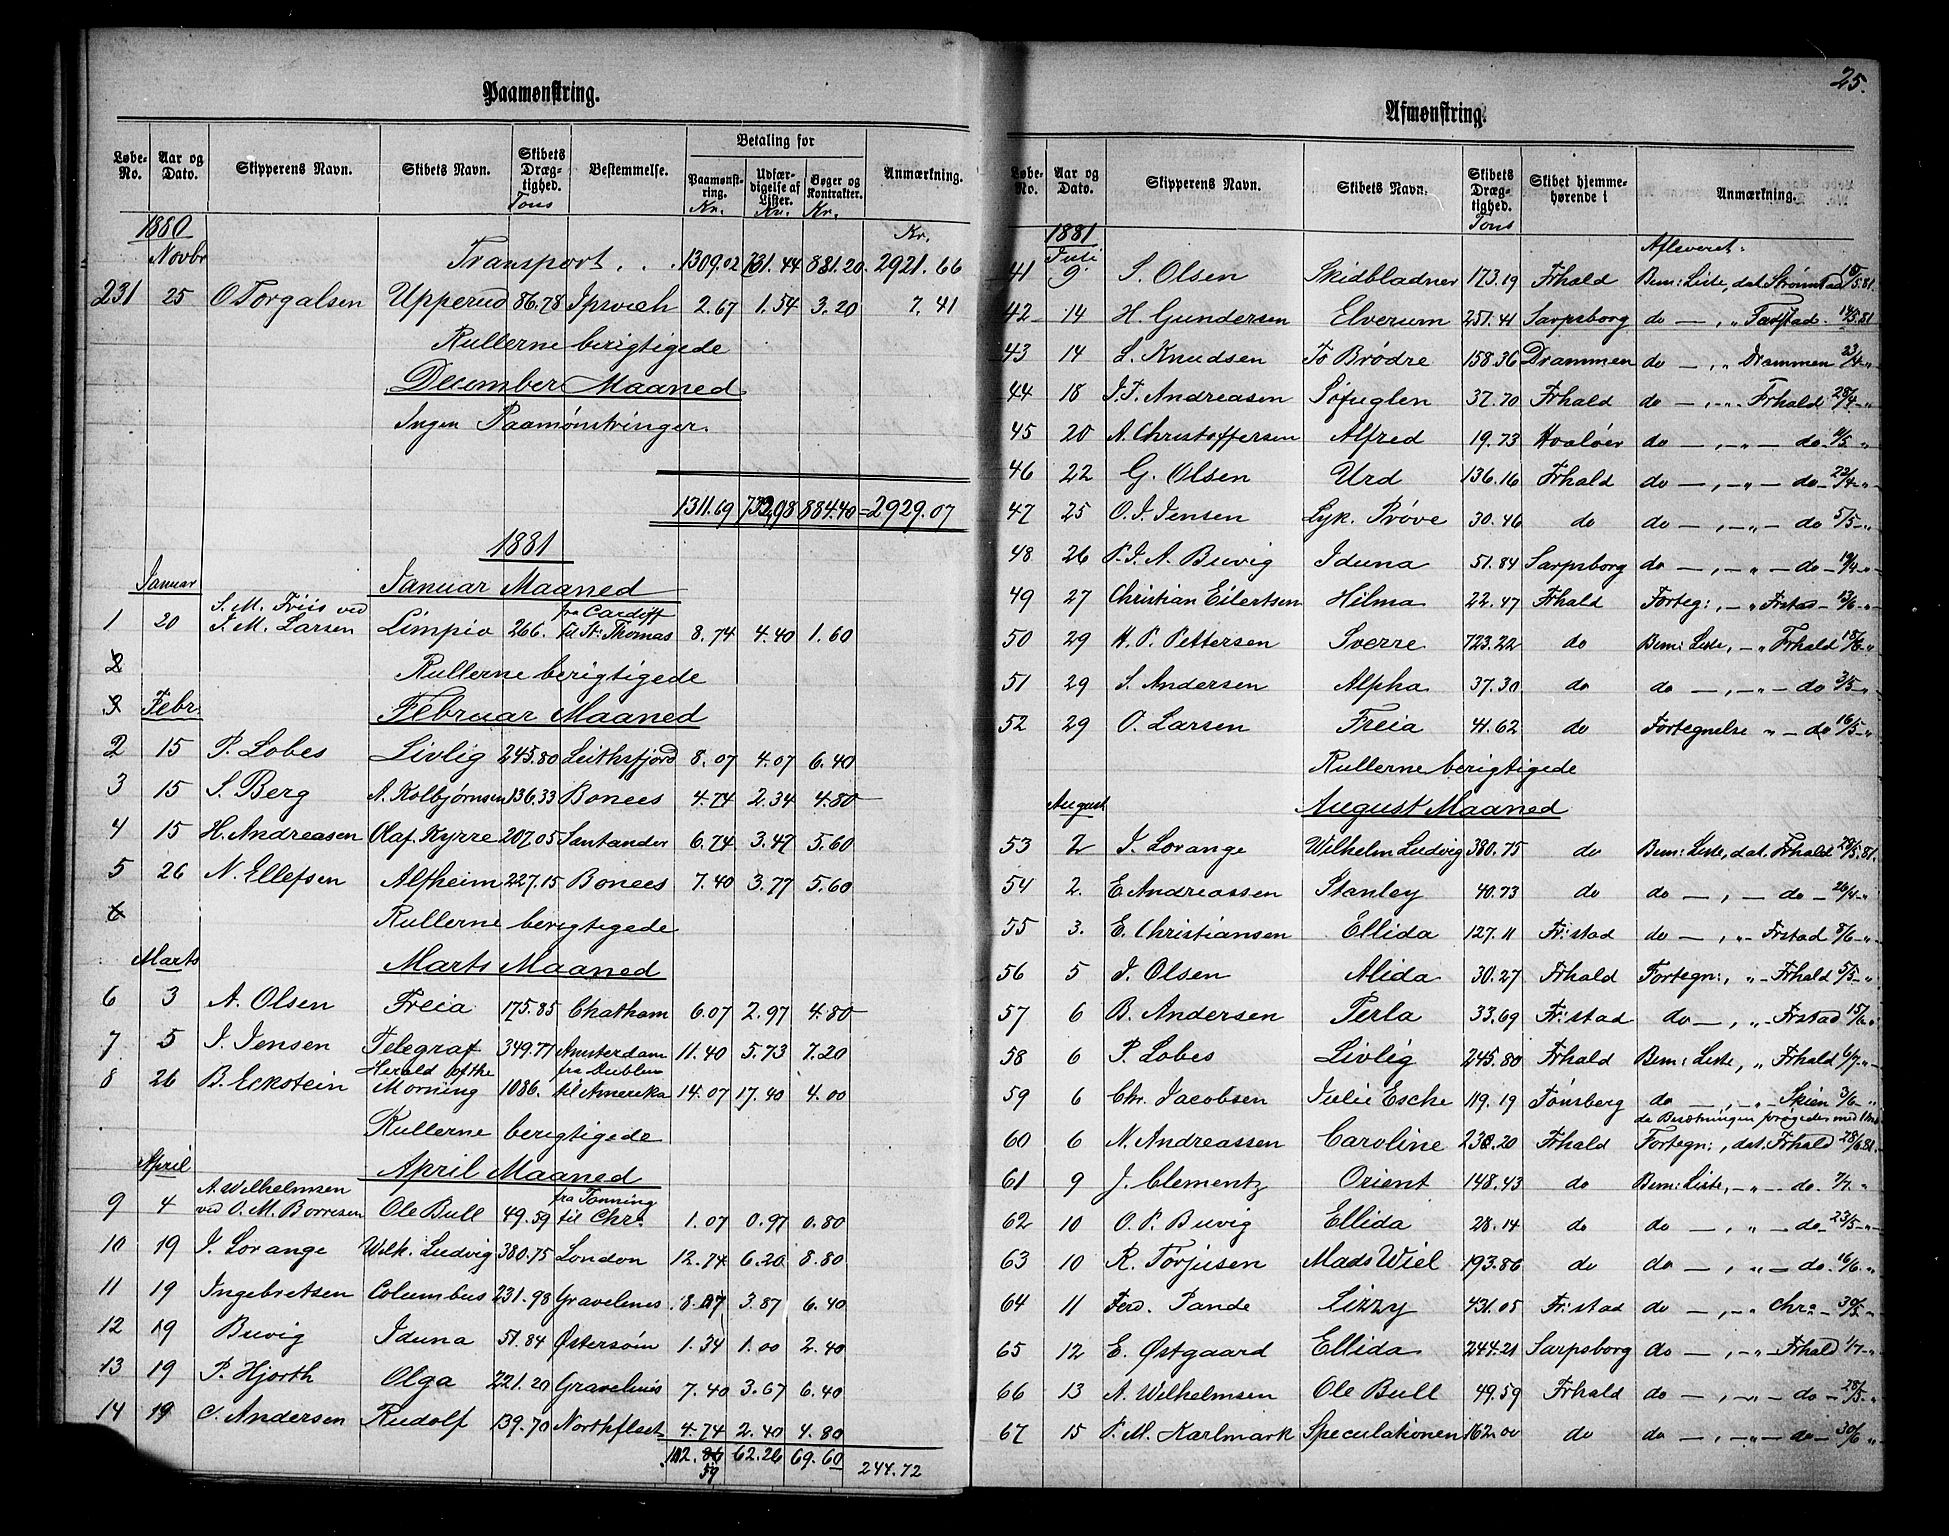 Paamønstring.
Løbe-No. Aar og Dato. Skipperens Navn. Skibets Navn. Skibets Dræg-tighed. Tons Bestemmelse. Betaling for Paamønst-ring. Kr. Udfær-digelse af Lister. Kr. Bøger og Kontrakter. Kr. Anmærkning.
1880 Kr.
Novbr Transport . . 1309.02 731.44 881.20 2921.66
231 25 O Torgalsen Upperud 86.78 Ipswich 2.67 1.54 3.20 7.41
Rullerne berigtigede
December Maaned
Ingen Paamønstringer.
1311.69 732.98 884.40 = 2929.07
1881
Januar Januar Maaned
S. M. Friis ved fra Cardiff
1 20 J. M. Larsen Limpio 266. til St: Thomas 8.74 4.40 1.60
2 Rullerne berigtigede
3 Febr. Februar Maaned
2 15 P. Lobes Livlig 245.80 Leithsfjord 8.07 4.07 6.40
3 15 S. Berg A. Kolbjørnsen 136.33 Bonees 4.74 2.34 4.80
4 15 H. Andreasen Olaf Kyrre 207.05 Santander 6.74 3.47 5.60
5 26 N. Ellefsen Alfheim 227.15 Bonees 7.40 3.77 5.60
6 Rullerne berigtigede
Marts Marts Maaned
6 3 A. Olsen Freia 175.85 Chatham 6.07 2.97 4.80
7 5 J. Jensen Telegraf 349.77 Amsterdam 11.40 5.73 7.20
Herald of the fra Dublin
8 26 B. Eckstein Morning 1086. til Amerika 14.07 17.40 4.00
Rullerne berigtigede
April April Maaned
A. Wilhelmsen fra Tønning
9 4 ved O. M. Børresen Ole Bull 49.59 til Chr: 1.07 0.97 0.80
10 19 J. Lorange Wilh. Ludvig 380.75 London 12.74 6.20 8.80
11 19 Ingebretsen Columbus 231.98 Gravelines 8.07 3.87 6.40
12 19 Buvig Iduna 51.84 Østersøen 1.34 1.00 2.40
13 19 P. Hjorth Olga 221.20 Gravelines 7.40 3.67 6.40
14 19 C. Andersen Rudolf 139.70 Northfleet 4.74 2.40 4.80
112.86 62.26 69.60 244.72
59
25.
Afmønstring.
Løbe-No. Aar og Dato. Skipperens Navn. Skibets Navn. Skibets Dræg-tighed. Tons Skibet hjemme-hørende i Anmærkning.
1881 Afleveret:
Juli
41 9. S. Olsen Skidbladner 173.19 Frhald Bem: Liste, dat. Strømstad 18/5.81.
42 14 H. Gundersen Elverum 251.41 Sarpsborg do — „ Farstad 14/5.81
43 14 L. Knudsen To Brødre 158.36 Drammen do — „ Drammen 23/4 - „
44 18 J. F. Andreasen Søfuglen 37.70 Frhald do — „ Frhald 28/4 - „
45 20 A. Christoffersen Alfred 19.73 Hvaløer do — „ — do 4/5 - „
46 22 G. Olsen Urd 136.16 Frhald do — „ — do 22/4 - „
47 25 O. J. Jensen Lyk. Prøve 30.46 do do — „ — do 5/5 - „
48 26 P. J. A. Buvig Iduna 51.84 Sarpsborg do — „ — do 19/4 - „
49 27 Christian Eilertsen Hilma 22.47 Frhald Forteg:, „ Frstad 13/6 - „
50 29 H. P. Pettersen Sverre 723.22 do Bem: Liste, — „ Frhald 18/6 - „
51 29 S. Andersen Alpha 37.30 do do — „ — do 3/5 - „
52 29 O. Larsen Freia 41.62 do Fortegnelse „ — do 16/5 - „
Rullerne berigtigede
August August Maaned
53 2 J. Lorange Wilhelm Ludvig 380.75 do Bem: Liste, dat. Frhald 28/5.81.
54 2. E Andreassen Stanley 40.73 do do — „ — do — 26/4 - „
55 3. E. Christiansen Ellida 127.11 Fr:stad do — „ Frstad 8/6 - „
56 5 J. Olsen Alida 30.27 Frhald Fortegn:, „ Frhald 5/5 - „
57 6 B. Andersen Perla 33.69 Fr:stad do — „ Frstad 15/6 - „
58 6 P. Lobes Livlig 245.80 Frhald Bem: Liste, „ Frhald 6/7 - „
59 6 Chr. Jacobsen Julie Esche 119.19 Tønsberg do — „ — Skien 3/6 - „
do Besætningen forøgedes med 1
60 6 N. Andreassen Caroline 230.20 Frhald Fortegn:, dat. Frhald 28/6 81.
61 9 J. Clementz Orient 148.43 do Bem: Liste, — „ — do. 7/7. „
62 10 O. P. Buvig Ellida 28.14 do do — „ — do 23/5 - „
63 10 R. Torjusen Mads Wiel 193.80 do do — „ — do. 16/6 - „
64 11 Ferd. Pande Lizzy 431.05 Fr:stad do — „ Chr:a 30/5 - „
65 12 E. Østgaard Ellida 244.21 Sarpsborg do — „ Frhald 1/7 - „
66 13 A. Wilhelmsen Ole Bull 49.59 Frhald do — „ — do 28/5 - „
67 15 P. M. Karlmark Speculationen 162.00 do do — „ — do 30/6 „